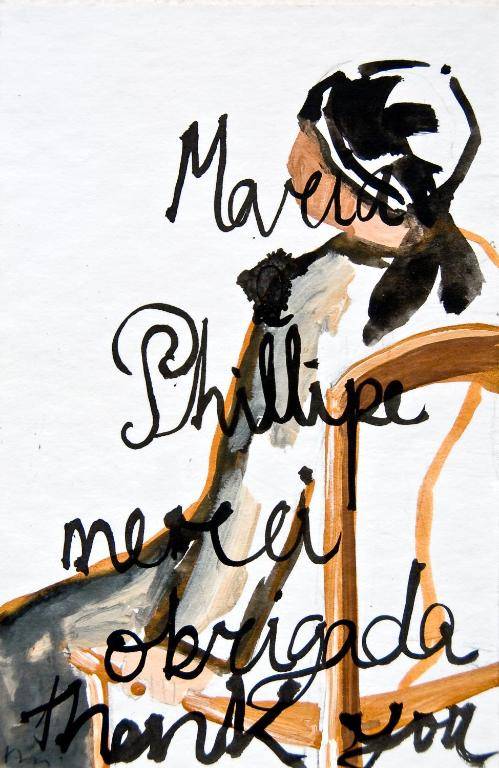 Maria
&
Phillipe
merci
obrigada
thank you